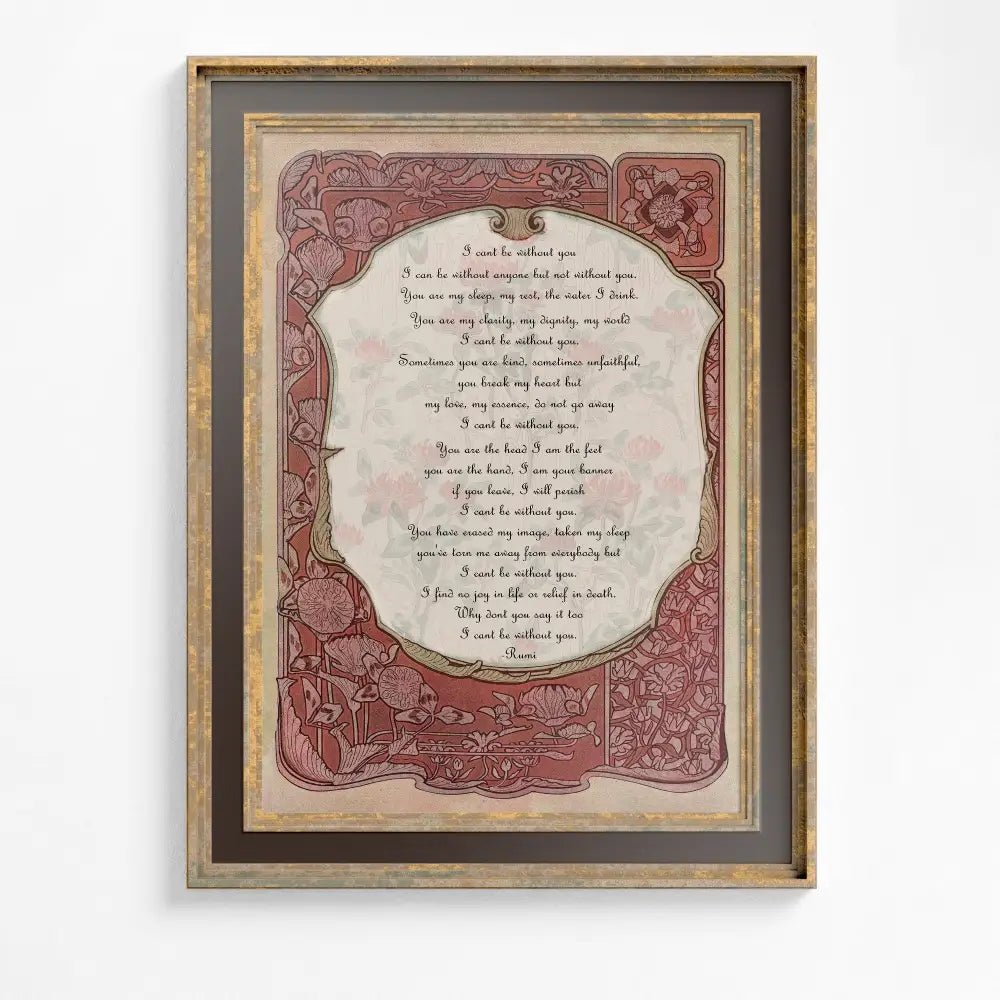 I cant be without you
I can be without anyone but not without you.
You are my sleep, my rest, the water I drink.
You are my clarity, my dignity, my world
I cant be without you.
Sometimes you are kind, sometimes unfaithful,
you break my heart but
my love, my essence, do not go away
I cant be without you.
You are the head I am the feet
you are the hand, I am your banner
if you leave, I will perish
I cant be without you.
You have erased my image, taken my sleep
you've torn me away from everybody but
I cant be without you.
I find no joy in life or relief in death.
Why dont you say it too
I cant be without you.
-Rumi